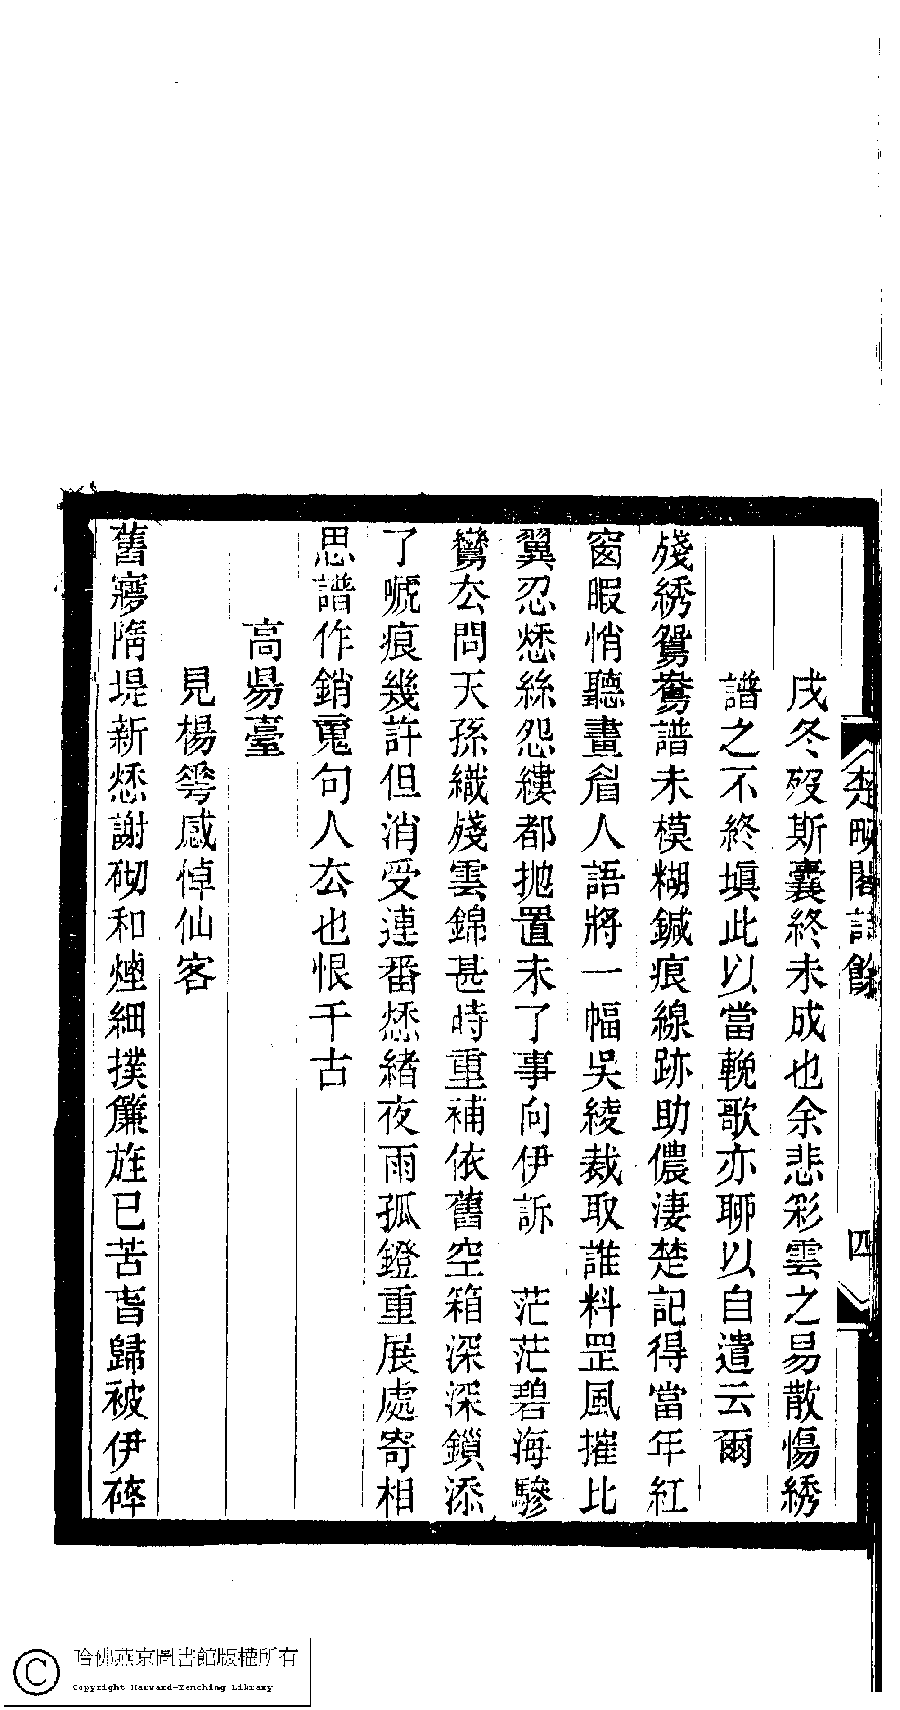 戌冬歿斯囊終未成也余悲彩雲之易散傷綉
譜之不終塡此以當輓歌亦聊以自遣云爾
殘綉鴛鴦譜未模糊鍼痕線跡助儂淒楚記得當年紅
窗暇悄聽畫眉人語將一幅吳綾裁取誰料罡風摧比
翼忍愁絲怨縷都拋置未了事向伊訴　茫茫碧海驂
鸞厺問天孫織殘雲錦甚時重補依舊空箱深深鎖添
了唬痕幾許但消受連番愁緒夜雨孤鐙重展處寄相
思譜作銷䰟句人厺也恨千古
高昜臺
見楊花感悼仙客
舊寢隋堤新愁謝砌和煙細撲簾旌已苦旾歸被伊碎
楚畹閣詩餘
四
哈佛燕京圖書館版權所有
Copyright Harvard-Yenching Library